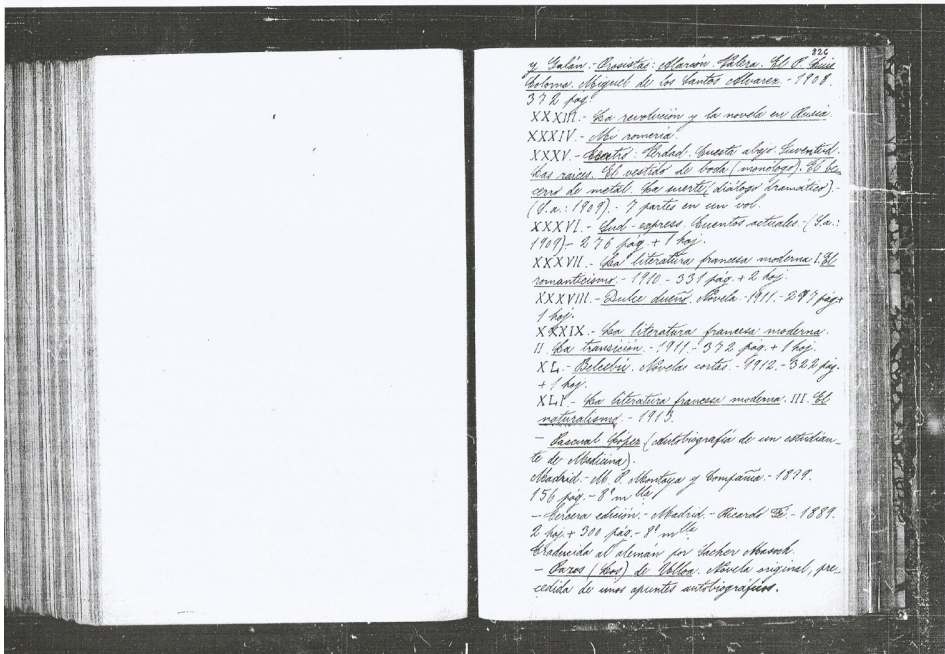 326
y Galán. - Prosistas: Alarcón. Valera. El P. Luis
Coloma. Miguel de los Santos Alvarez. - 1908.
372 pag.
XXXIII. - La revolución y la novela en Rusia.
XXXIV. - Mi romería.
XXXV. - Teatro: Verdad. Cuesta abajo. Juventud.
Las raices. El vestido de boda (monólogo). El be-
cerro de metal. La suerte (diálogo dramático). -
(S.a.: 1909). - 7 partes en un vol.
XXXVI. - Sud-express. Cuentos actuales. - (S.a.:
1909) - 276 pág. + 1 hoj.
XXXVII. - La literatura francesa moderna I. El
romanticismo. - 1910. - 331 pág. + 2 hoj.
XXXVIII. - Dulce dueño. Novela. - 1911. - 297 pág +
1 hoj.
XXXIX. - La literatura francesa moderna.
II La transición. - 1911. - 372 pág. + 1 hoj.
XL. - Belcebú. Novelas cortas. - 1912. - 322 pág.
+ 1 hoj.
XLI - La literatura francesa moderna. III. El
naturalismo. - 1913.
- Pascual López (Autobiografía de un estudian-
te de Medicina).
Madrid. - M. P. Montoya y Compañia. - 1899.
156 pág. - 8º m lla
- Tercera edición. - Madrid. - Ricardo Fé. - 1889.
2 hoj. + 300 pág. - 8º m lla
Traducida al alemán por Sacher Masoch.
- Pazos (Los) de Ulloa. Novela original, pre-
cedida de unos apuntes autobiográficos.